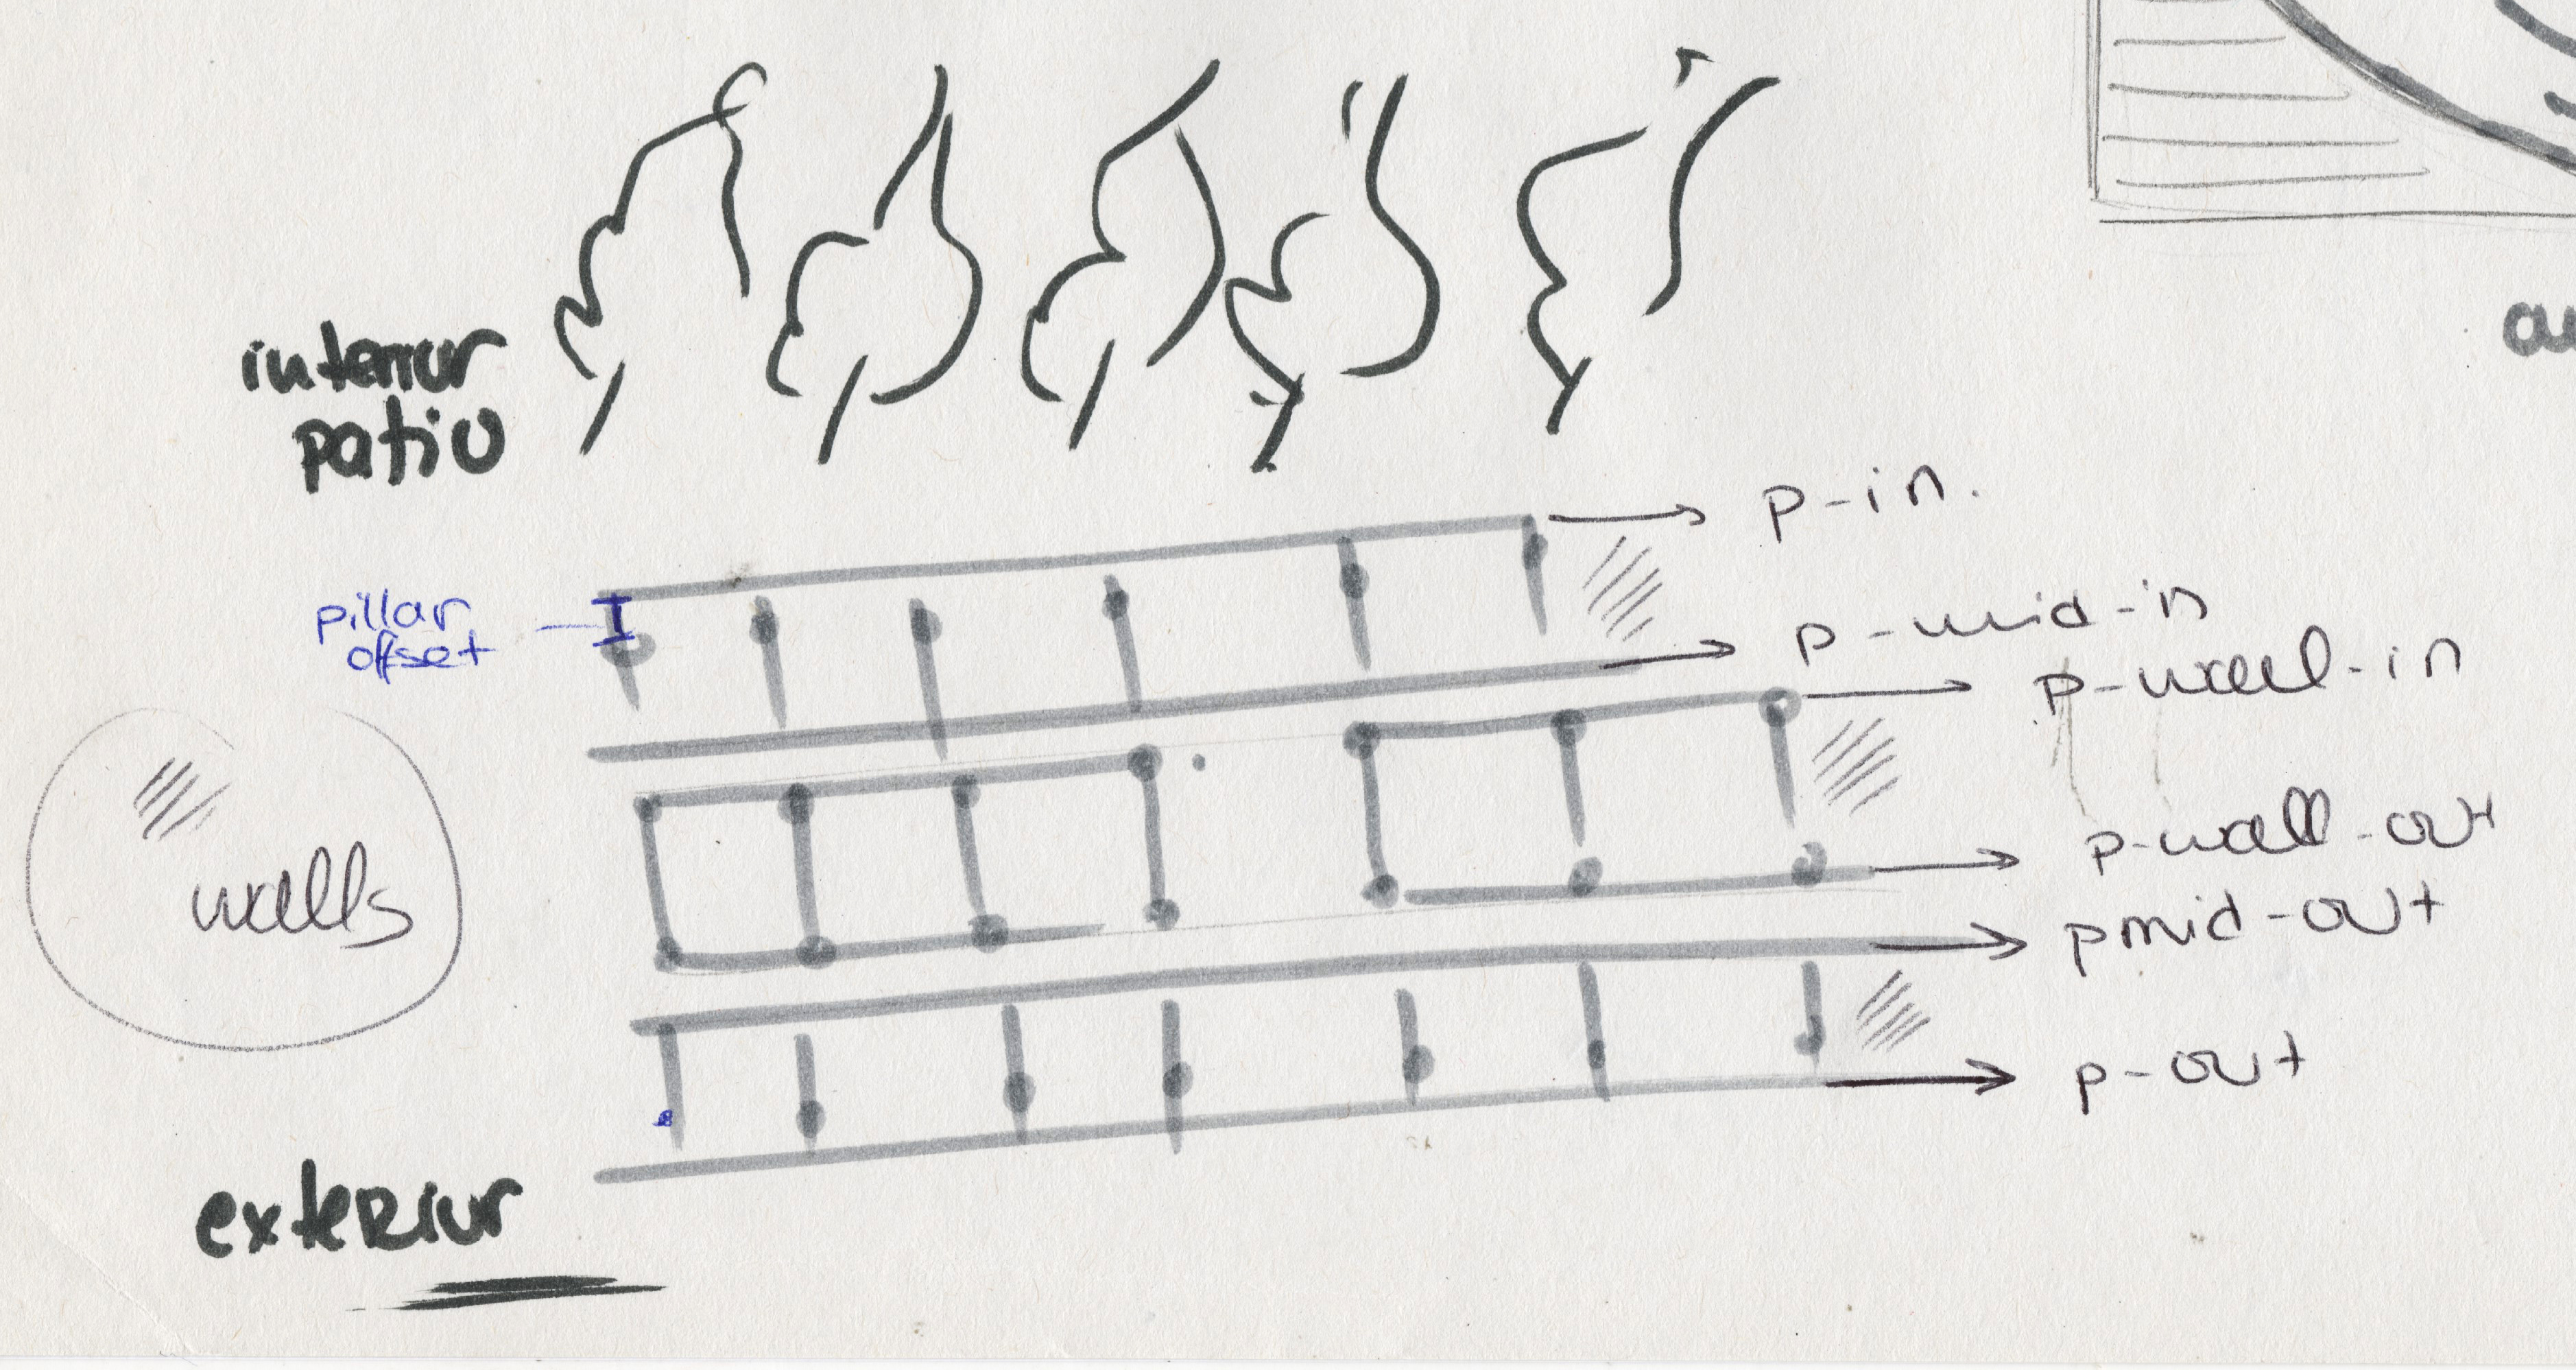 interior
patio
p-in.
pillar
offset
p-mid-in
p-wall-in
walls
p-wall-out
pmid-out
p-out
exterior